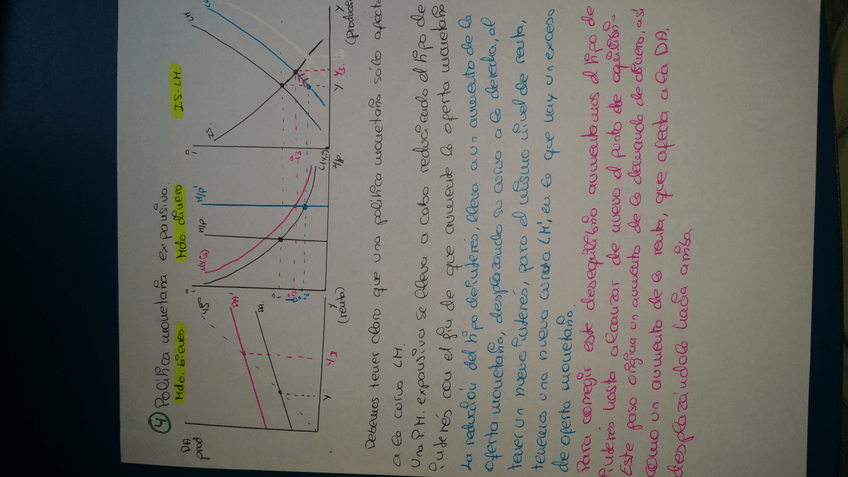 ④ Política monetaria expansiva.
Mdo. bienes Mdo. dinero IS-LM.
DA
prod.
45º
DA'
DA
Y Y3
Y
(renta)
i
L(Y3,i)
M/P M/P'
i
i3
i2
L(Y,i)
M/P.
i
LM
IS
i3
Y Y3
Y
(producción
Debemos tener claro que una política monetaria sólo afecta
a la curva LM.
Una P.M. expansiva se lleva a cabo reduciendo el tipo de
interés con el fin de que aumente la oferta monetaria
La reducción del tipo de interés, lleva a un aumento de la
oferta monetaria, desplazando su curva a la derecha, al
tener un nuevo interés, para el mismo nivel de renta,
tenemos una nueva curva LM, en la que hay un exceso
de oferta monetaria.
Para corregir este desequilibrio aumentamos el tipo de
interés hasta alcanzar de nuevo el punto de equilibrio
Este paso origina un aumento de la demanda de dinero, así
como un aumento de la renta, que afecta a la DA.
desplazándola hacia arriba.